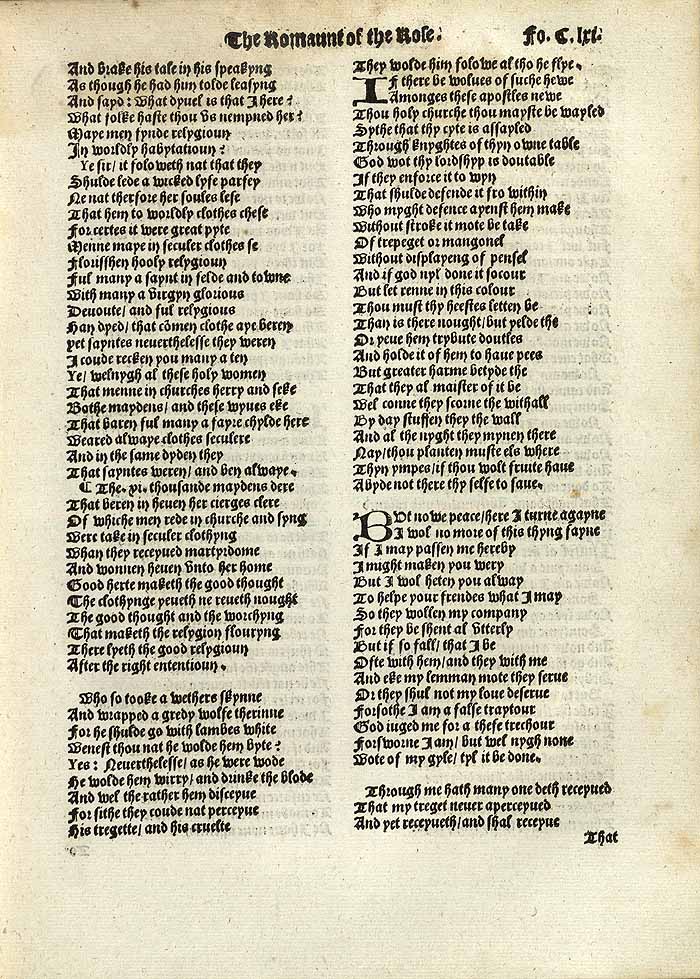 The Romaunt of the Rose.
Fo. C. lxi.
And brake his tale in his speakyng
As though he had him tolde leasyng
And sayd: What dyuel is that I here?
What folke haste thou vs nempned her?
Maye men fynde relygioun
In worldly habytatioun?
Ye sir/ it foloweth nat that they
Shulde lede a wicked lyfe parfey
Ne nat therfore her soules lese
That hem to worldly clothes chese
For certes it were great pyte
Menne maye in seculer clothes se
Florisshen hooly relygioun
Ful many a saynt in felde and towne
With many a virgyn glorious
Deuoute/ and ful relygious
Han dyed/ that cōmen clothe aye beren
yet sayntes neuerthelesse they weren
I coude recken you many a ten
Ye/ welnygh al these holy women
That menne in churches herry and seke
Bothe maydens/ and these wyues eke
That baren ful many a fayre chylde here
Weared alwaye clothes seculere
And in the same dyden they
That sayntes weren/ and ben alwaye.
¶ The .xi. thousande maydens dere
That beren in heuen her cierges clere
Of whiche men rede in churche and syng
Were take in seculer clothyng
Whan they receyued martyrdome
And wonnen heuen vnto her home
Good herte maketh the good thought
The clothynge yeueth ne reueth nought
The good thought and the worchyng
That maketh the relygion flouryng
There lyeth the good relygioun
After the right ententioun.
Who so tooke a wethers skynne
And wrapped a gredy wolfe therinne
For he shulde go with lambes white
Wenest thou nat he wolde hem byte?
Yes: Neuerthelesse/ as he were wode
He wolde hem wirry/ and drinke the blode
And wel the rather hem disceyue
For sithe they coude nat perceyue
His tregette/ and his cruelte
They wolde him folowe al tho he flye.
If there be wolues of suche hewe
Amonges these apostles newe
Thou holy churche thou mayste be wayled
Sythe that thy cyte is assayled
Through knyghtes of thyn owne table
God wot thy lordshyp is doutable
If they enforce it to wyn
That shulde defende it fro within
Who myght defence ayenst hem make
Without stroke it mote be take
Of trepeget or mangonel
Without displayeng of pensel
And if god nyl done it socour
But let renne in this colour
Thou must thy heestes letten be
Than is there nought/ but yelde the
Or yeue hem trybute doutles
And holde it of hem to haue pees
But greater harme betyde the
That they al maister of it be
Wel conne they scorne the withall
By day stuffen they the wall
And al the nyght they mynen there
Nay/ thou planten muste els where
Thyn ympes/ if thou wolt fruite haue
Abyde not there thy selfe to saue.
But nowe peace/ here I turne agayne
I wol no more of this thyng sayne
If I may passen me hereby
I might maken you wery
But I wol heten you alway
To helpe your frendes what I may
So they wollen my company
For they be shent al vtterly
But if so fall/ that I be
Ofte with hem/ and they with me
And eke my lemman mote they serue
Or they shul not my loue deserue
Forsothe I am a false traytour
God iuged me for a thefe trechour
Forsworne I am/ but wel nygh none
Wote of my gyle/ tyl it be done.
Through me hath many one deth receyued
That my treget neuer aperceyued
And yet receyueth/ and shal receyue
That